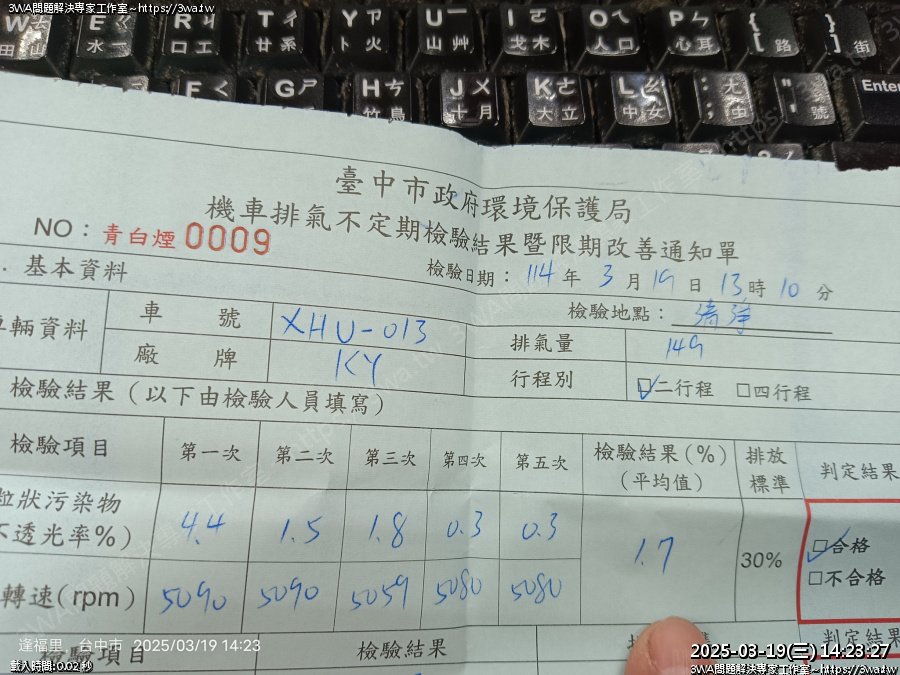 3WA問題解決專家工作室~https://3wa.tw
W 田
E 水
R ㄐ 口 工
T ㄔ 廿 系
Y ㄗ 卜 火
U ㄧ 山 艸
I ㄛ 戈 木
O ㄟ 人 口
P ㄣ 心 耳
{ [ 路
} ] 街
F ㄑ
G ㄕ
H ㄘ 竹 鳥
J ㄨ 十 月
K ㄜ 大 立
L ㄠ 中 女
: ; ㄤ 虫
" ' 號
Enter
臺中市政府環境保護局
機車排氣不定期檢驗結果暨限期改善通知單
NO：青白煙0009
檢驗日期：114年3月19日13時10分
基本資料
檢驗地點：清淨
車輛資料 車號 XHU-013 排氣量 149
廠牌 KY 行程別 ☑二行程 □四行程
檢驗結果（以下由檢驗人員填寫）
檢驗項目 第一次 第二次 第三次 第四次 第五次 檢驗結果(%)(平均值) 排放標準 判定結果
粒狀污染物
不透光率%) 4.4 1.5 1.8 0.3 0.3 1.7 30% ☑合格
□不合格
轉速(rpm) 5090 5090 5059 5080 5080
檢驗項目 檢驗結果 判定結果
逢福里，台中市 2025/03/19 14:23
載入時間:0.02 秒
2025-03-19(三) 14:23:27
3WA問題解決專家工作室~https://3wa.tw